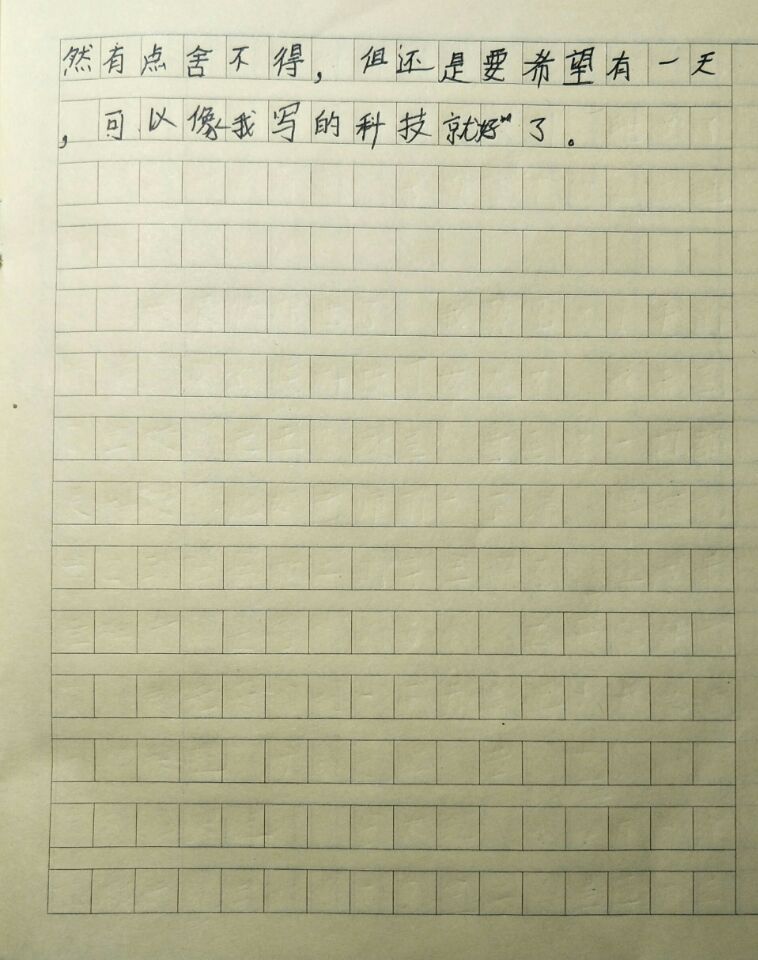 然有点舍不得，但还是要希望有一天
，可以像我写的科技就好"了。